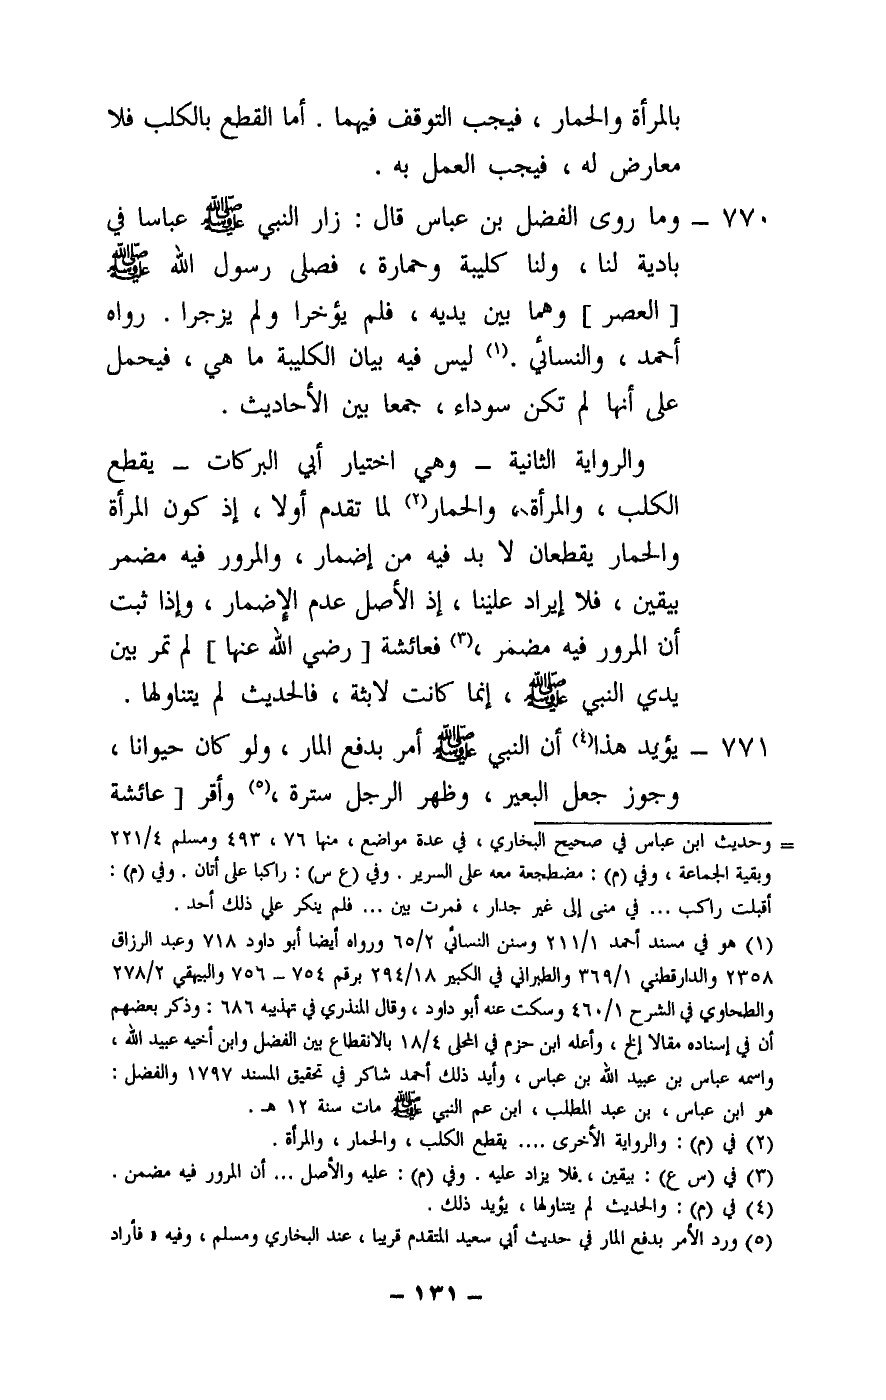 بالمرأة والحمار ، فيجب التوقف فيهما . أما القطع بالكلب فلا
معارض له ، فيجب العمل به .
٧٧٠ – وما روى الفضل بن عباس قال : زار النبي ﷺ عباسا في
بادية لنا ، ولنا كليبة وحمارة ، فصلى رسول الله ﷺ
[ العصر ] وهما بين يديه ، فلم يؤخرا ولم يزجرا . رواه
أحمد ، والنسائي .(١) ليس فيه بيان الكليبة ما هي ، فيحمل
على أنها لم تكن سوداء ، جمعا بين الأحاديث .
والرواية الثانية – وهي اختيار أبي البركات – يقطع
الكلب ، والمرأة ، والحمار(٢) لما تقدم أولا ، إذ كون المرأة
والحمار يقطعان لا بد فيه من إضمار ، والمرور فيه مضمر
بيقين ، فلا إيراد علينا ، إذ الأصل عدم الإضمار ، وإذا ثبت
أن المرور فيه مضمر ،(٣) فعائشة [ رضي الله عنها ] لم تمر بين
يدي النبي ﷺ ، إنما كانت لابثة ، فالحديث لم يتناولها .
٧٧١ – يؤيد هذا(٤) أن النبي ﷺ أمر بدفع المار ، ولو كان حيوانا ،
وجوز جعل البعير ، وظهر الرجل سترة ،(٥) وأقر [ عائشة
= وحديث ابن عباس في صحيح البخاري ، في عدة مواضع ، منها ٧٦ ، ٤٩٣ ومسلم ٢٢١/٤
وبقية الجماعة ، وفي (م) : مضطجعة معه على السرير . وفي (ع س) : راكبا على أتان . وفي (م) :
أقبلت راكب ... في منى إلى غير جدار ، فمرت بين ... فلم ينكر علي ذلك أحد .
(١) هو في مسند أحمد ٢١١/١ وسنن النسائي ٦٥/٢ ورواه أيضا أبو داود ٧١٨ وعبد الرزاق
٢٣٥٨ والدارقطني ٣٦٩/١ والطبراني في الكبير ٢٩٤/١٨ برقم ٧٥٤ – ٧٥٦ والبيهقي ٢٧٨/٢
والطحاوي في الشرح ٤٦٠/١ وسكت عنه أبو داود ، وقال المنذري في تهذيبه ٦٨٦ : وذكر بعضهم
أن في إسناده مقالا إلخ ، وأعله ابن حزم في المحلى ١٨/٤ بالانقطاع بين الفضل وابن أخيه عبيد الله ،
واسمه عباس بن عبيد الله بن عباس ، وأيد ذلك أحمد شاكر في تحقيق المسند ١٧٩٧ والفضل :
هو ابن عباس ، بن عبد المطلب ، ابن عم النبي ﷺ مات سنة ١٢ هـ .
(٢) في (م) : والرواية الأخرى .... يقطع الكلب ، والحمار ، والمرأة .
(٣) في (س ع) : بيقين ، فلا يزاد عليه . وفي (م) : عليه والأصل ... أن المرور فيه مضمن .
(٤) في (م) : والحديث لم يتناولها ، يؤيد ذلك .
(٥) ورد الأمر بدفع المار في حديث أبي سعيد المتقدم قريبا ، عند البخاري ومسلم ، وفيه « فأراد
– ١٣١ –